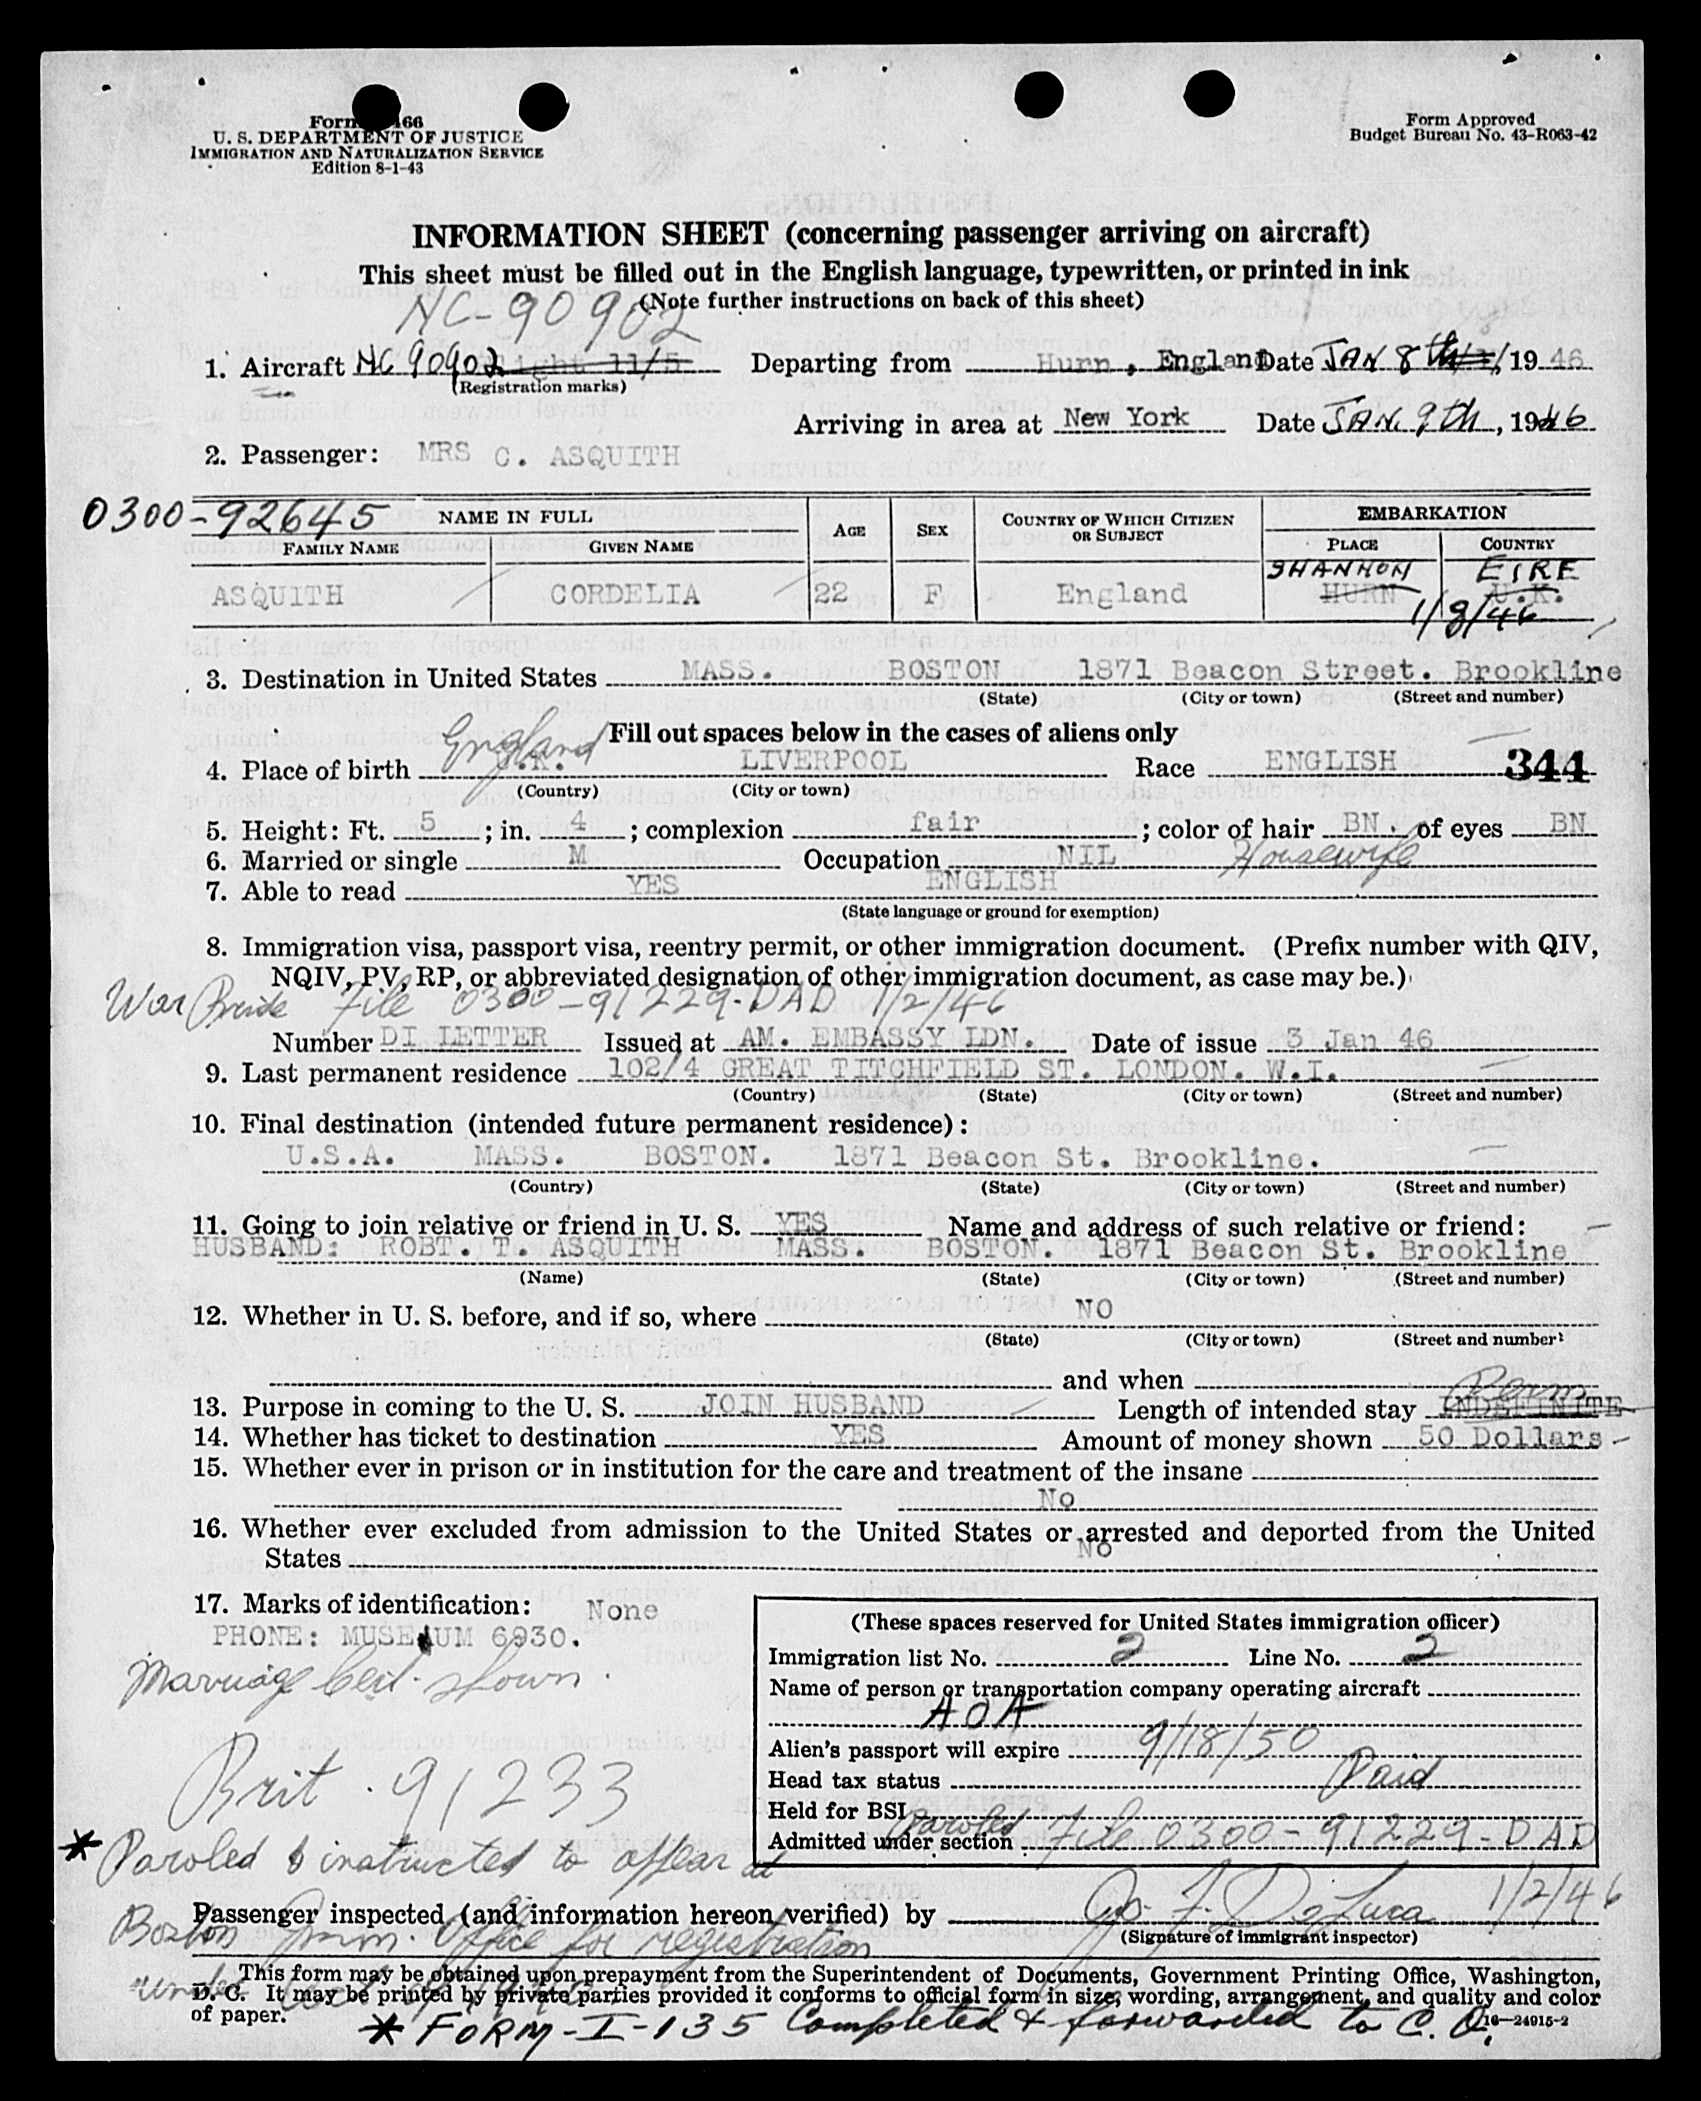 Form 466
U. S. DEPARTMENT OF JUSTICE
IMMIGRATION AND NATURALIZATION SERVICE
Edition 8-1-43
Form Approved
Budget Bureau No. 43-R063-42
INFORMATION SHEET (concerning passenger arriving on aircraft)
This sheet must be filled out in the English language, typewritten, or printed in ink
(Note further instructions on back of this sheet)
NC-90902
1. Aircraft NC 90902 Flight 11/5 Departing from Hurn, England Date JAN 8th, 1946
(Registration marks)
Arriving in area at New York Date JAN. 9th, 1946
2. Passenger: MRS C. ASQUITH
0300-92645
NAME IN FULL AGE SEX COUNTRY OF WHICH CITIZEN OR SUBJECT EMBARKATION
FAMILY NAME GIVEN NAME PLACE COUNTRY
SHANNON EIRE
ASQUITH CORDELIA 22 F England HURN U.K.
1/8/46
3. Destination in United States MASS. BOSTON 1871 Beacon Street. Brookline
(State) (City or town) (Street and number)
Fill out spaces below in the cases of aliens only
England
4. Place of birth U.K. LIVERPOOL Race ENGLISH 344
(Country) (City or town)
5. Height: Ft. 5; in. 4; complexion fair; color of hair BN. of eyes BN
6. Married or single M Occupation NIL Housewife
7. Able to read YES ENGLISH
(State language or ground for exemption)
8. Immigration visa, passport visa, reentry permit, or other immigration document. (Prefix number with QIV,
NQIV, PV, RP, or abbreviated designation of other immigration document, as case may be.)
War Bride File 0300-91229-DAD 1/2/46
Number DI LETTER Issued at AM. EMBASSY LDN. Date of issue 3 Jan 46
9. Last permanent residence 102/4 GREAT TITCHFIELD ST. LONDON. W.I.
(Country) (State) (City or town) (Street and number)
10. Final destination (intended future permanent residence):
U.S.A. MASS. BOSTON. 1871 Beacon St. Brookline.
(Country) (State) (City or town) (Street and number)
11. Going to join relative or friend in U. S. YES Name and address of such relative or friend:
HUSBAND: ROBT. T. ASQUITH MASS. BOSTON. 1871 Beacon St. Brookline
(Name) (State) (City or town) (Street and number)
12. Whether in U. S. before, and if so, where NO
(State) (City or town) (Street and number)
and when
Perm
13. Purpose in coming to the U. S. JOIN HUSBAND Length of intended stay INDEFINITE
14. Whether has ticket to destination YES Amount of money shown 50 Dollars
15. Whether ever in prison or in institution for the care and treatment of the insane
No
16. Whether ever excluded from admission to the United States or arrested and deported from the United
States NO
17. Marks of identification: None
PHONE: MUSEUM 6930.
Marriage Cert. shown.
Brit. 91233
(These spaces reserved for United States immigration officer)
Immigration list No. 2 Line No. 2
Name of person or transportation company operating aircraft
AOA
Alien's passport will expire 9/18/50
Head tax status Paid
Held for BSI
Admitted under section Paroled File 0300-91229-DAD
* Paroled & instructed to appear at
Passenger inspected (and information hereon verified) by Jos. F. DeLuca 1/2/46
(Signature of immigrant inspector)
Boston Imm. Office for registration
This form may be obtained upon prepayment from the Superintendent of Documents, Government Printing Office, Washington,
under Act of
D. C. It may be printed by private parties provided it conforms to official form in size, wording, arrangement, and quality and color
of paper.
* FORM-I-135 Completed & forwarded to C. O.
16—24915-2